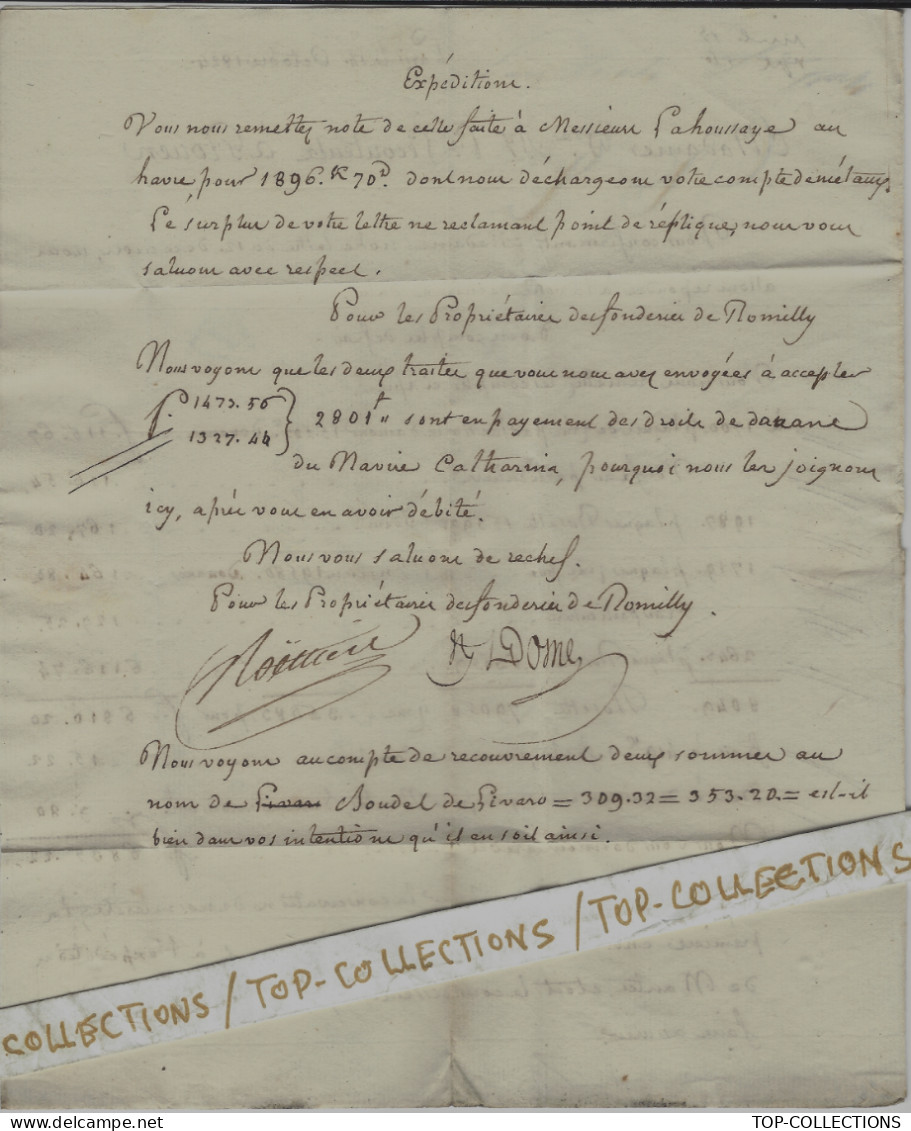 Expéditions.
Vous nous remettez note de celle faite à Messieurs Lahoussaye au
havre, pour 1896.K 70D. dont nous déchargeons votre compte de métaux
Le surplus de votre lettre ne reclamant point de réplique, nous vous
saluons avec respect.
Pour les Propriétaires des fonderies de Romilly
Nous voyons que les deux traites que vous nous avez envoyées à accepter
f. 1473.56
1327.44 } 2801f " sont en payement des droits de douane
du Navire Catharina, pourquoi nous les joignons
icy, après vous en avoir débité.
Nous vous saluons de rechef.
Pour les Propriétaires des fonderies de Romilly.
Nous voyons au compte de recouvrement deux sommes au
nom de Boudel de Livaro = 309.32 = 353.20. = est-il
bien dans vos intentions qu'il en soit ainsi.
COLLECTIONS / TOP-COLLECTIONS / TOP-COLLECTIONS
TOP-COLLECTIONS